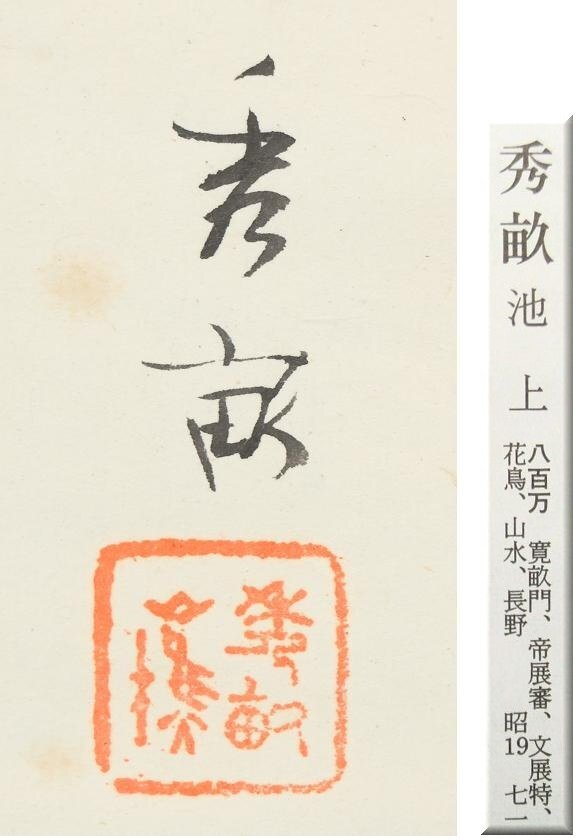 秀畝
秀畝
池上
八百万 寛畝門、帝展審、文展特、
花鳥、山水、長野 昭19 七一